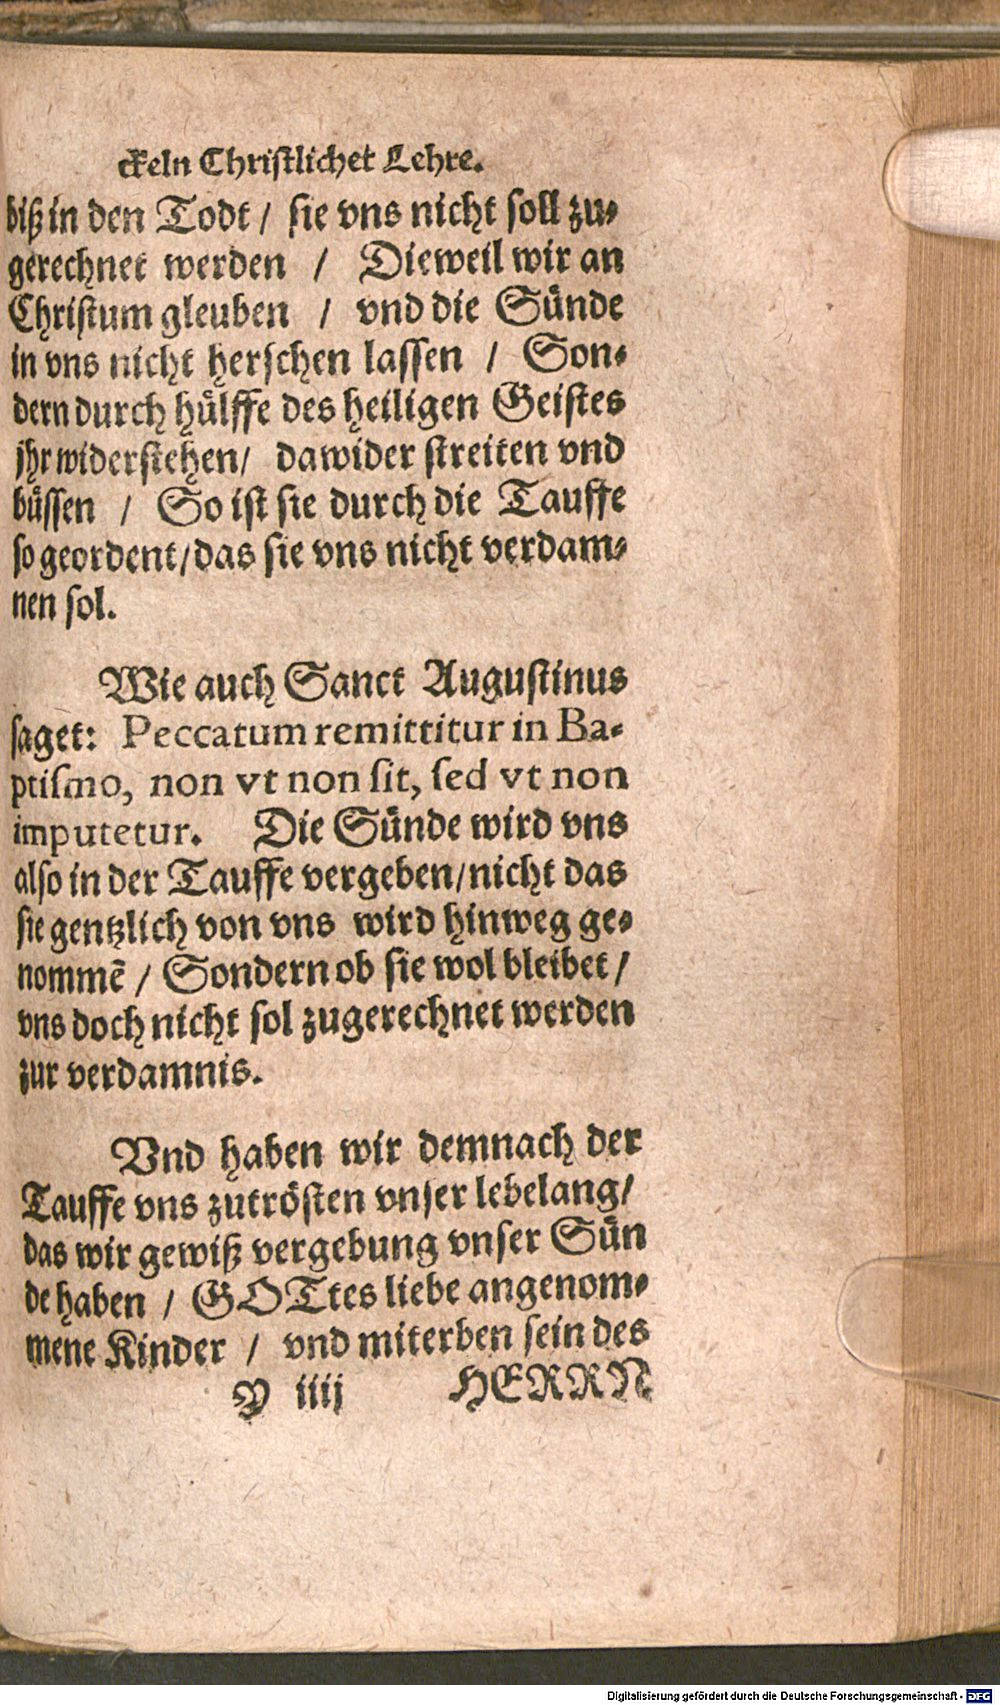 ckeln Christlichet Lehre.
biß in den Todt / sie vns nicht soll zu-
gerechnet werden / Dieweil wir an
Christum gleuben / vnd die Sünde
in vns nicht herschen lassen / Son-
dern durch hülffe des heiligen Geistes
jhr widerstehen/ dawider streiten vnd
büssen / So ist sie durch die Tauffe
so geordent/das sie vns nicht verdam-
nen sol.
Wie auch Sanct Augustinus
saget: Peccatum remittitur in Ba-
ptismo, non vt non sit, sed vt non
imputetur. Die Sünde wird vns
also in der Tauffe vergeben/nicht das
sie gentzlich von vns wird hinweg ge-
nommē / Sondern ob sie wol bleibet /
vns doch nicht sol zugerechnet werden
zur verdamnis.
Vnd haben wir demnach der
Tauffe vns zutrösten vnser lebelang/
das wir gewiß vergebung vnser Sün
de haben / GOTtes liebe angenom-
mene Kinder / vnd miterben sein des
V iiij HERRN
Digitalisierung gefördert durch die Deutsche Forschungsgemeinschaft - DFG